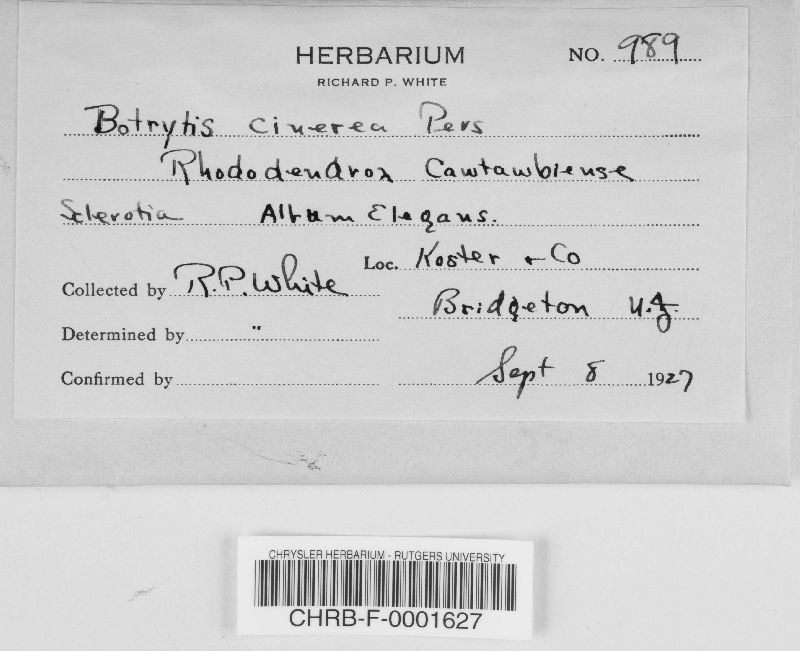 HERBARIUM NO. 989
RICHARD P. WHITE
Botrytis cinerea Pers
Rhododendron Cawtawbiense
Sclerotia Album Elegans.
Loc. Koster + Co
Collected by R.P. White
Bridgeton N.J.
Determined by "
Confirmed by Sept 8 1927
CHRYSLER HERBARIUM - RUTGERS UNIVERSITY
CHRB-F-0001627